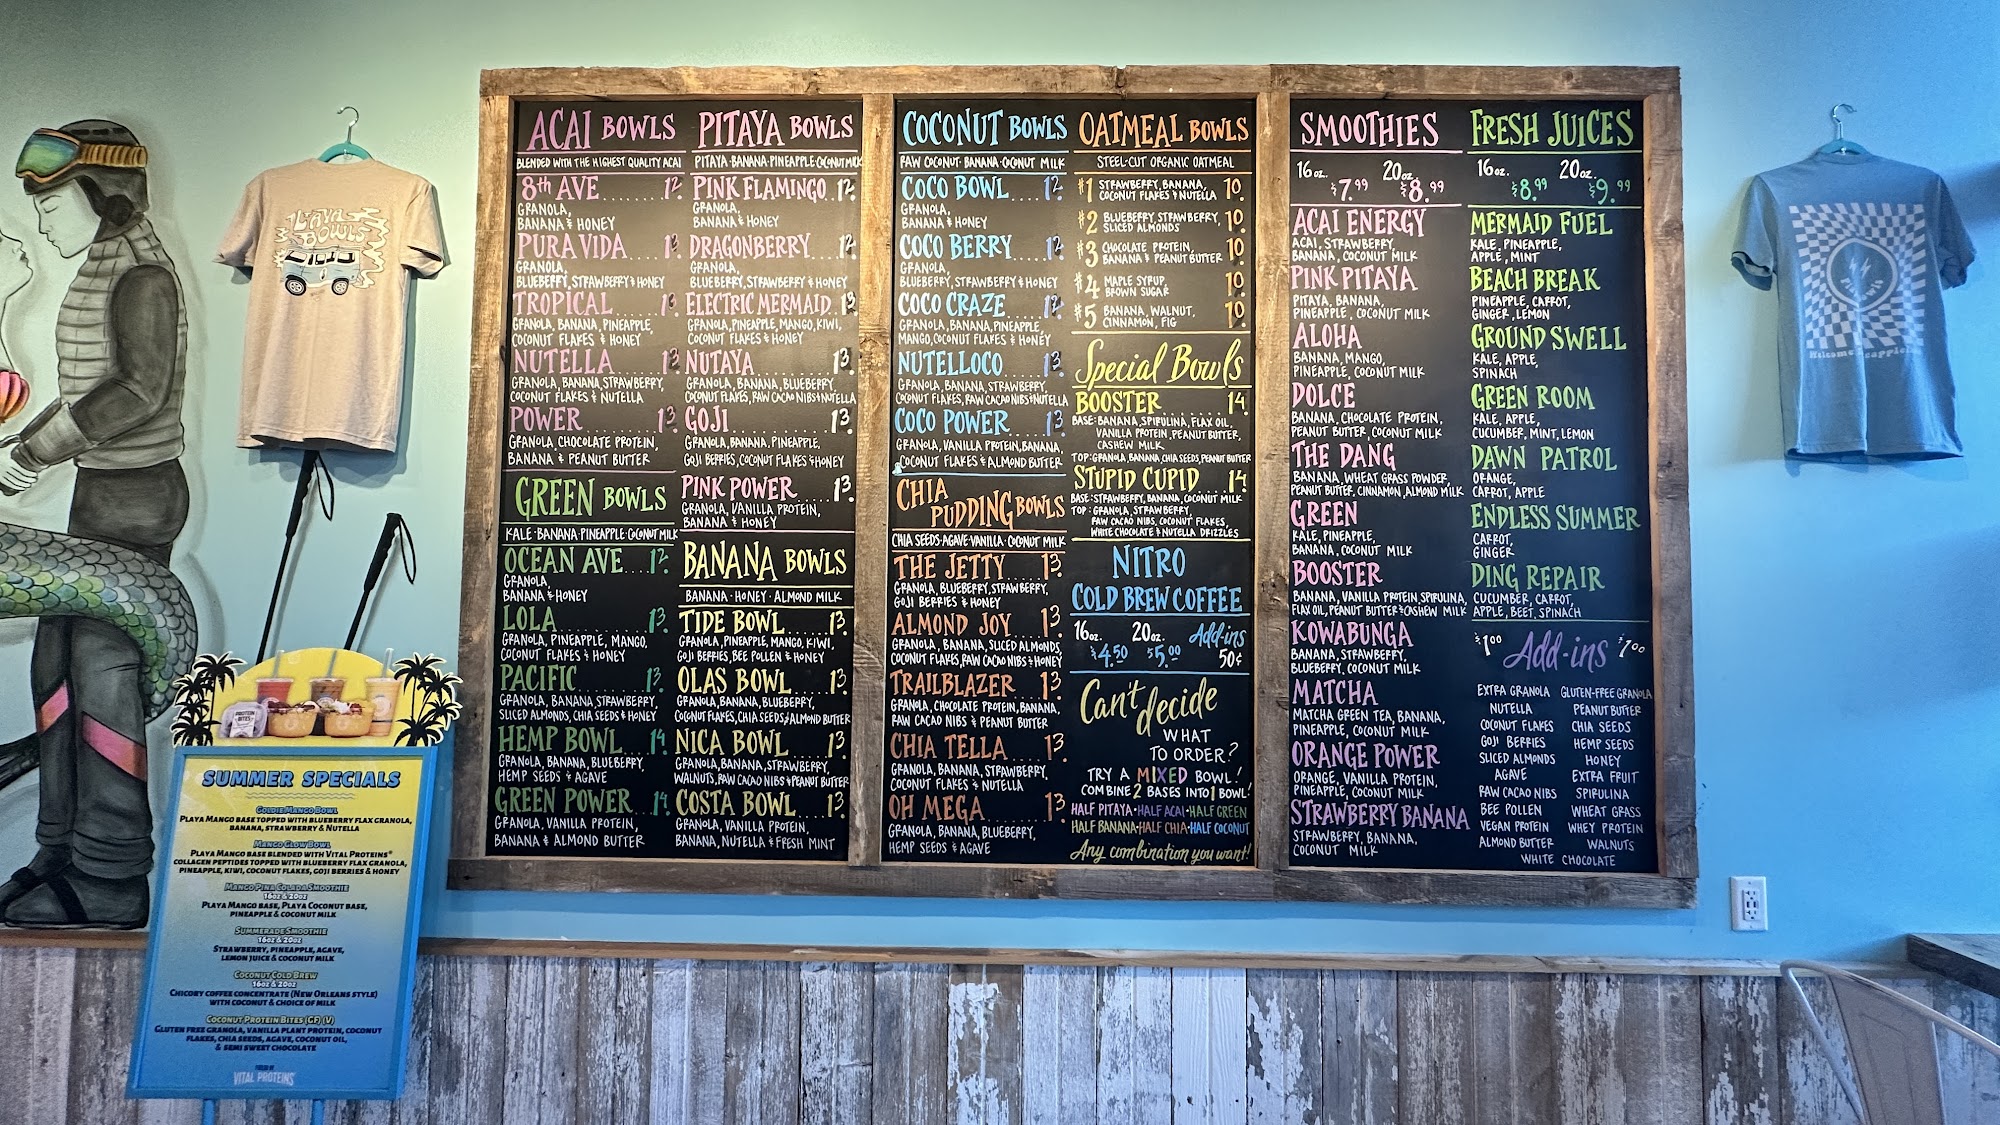 ACAI BOWLS
BLENDED WITH THE HIGHEST QUALITY ACAI
8th AVE........12.
GRANOLA,
BANANA & HONEY
PURA VIDA.....13.
GRANOLA,
BLUEBERRY, STRAWBERRY & HONEY
TROPICAL......13.
GRANOLA, BANANA, PINEAPPLE,
COCONUT FLAKES & HONEY
NUTELLA.......13
GRANOLA, BANANA, STRAWBERRY,
COCONUT FLAKES & NUTELLA
POWER........13.
GRANOLA, CHOCOLATE PROTEIN,
BANANA & PEANUT BUTTER
GREEN BOWLS
KALE·BANANA·PINEAPPLE·COCONUT MILK
OCEAN AVE....12.
GRANOLA,
BANANA & HONEY
LOLA.........13.
GRANOLA, PINEAPPLE, MANGO,
COCONUT FLAKES & HONEY
PACIFIC.......13.
GRANOLA, BANANA, STRAWBERRY,
SLICED ALMONDS, CHIA SEEDS & HONEY
HEMP BOWL...14.
GRANOLA, BANANA, BLUEBERRY,
HEMP SEEDS & AGAVE
GREEN POWER..14.
GRANOLA, VANILLA PROTEIN,
BANANA & ALMOND BUTTER
PITAYA BOWLS
PITAYA·BANANA·PINEAPPLE·COCONUT MILK
PINK FLAMINGO..12.
GRANOLA,
BANANA & HONEY
DRAGONBERRY....12.
GRANOLA,
BLUEBERRY, STRAWBERRY & HONEY
ELECTRIC MERMAID..13.
GRANOLA, PINEAPPLE, MANGO, KIWI,
COCONUT FLAKES & HONEY
NUTAYA........13.
GRANOLA, BANANA, BLUEBERRY,
COCONUT FLAKES, RAW CACAO NIBS & NUTELLA
GOJI..........13.
GRANOLA, BANANA, PINEAPPLE,
GOJI BERRIES, COCONUT FLAKES & HONEY
PINK POWER....13.
GRANOLA, VANILLA PROTEIN,
BANANA & HONEY
BANANA BOWLS
BANANA·HONEY·ALMOND MILK
TIDE BOWL....13.
GRANOLA, PINEAPPLE, MANGO, KIWI,
GOJI BERRIES, BEE POLLEN & HONEY
OLAS BOWL....13.
GRANOLA, BANANA, BLUEBERRY,
COCONUT FLAKES, CHIA SEEDS & ALMOND BUTTER
NICA BOWL....13.
GRANOLA, BANANA, STRAWBERRY,
WALNUTS, RAW CACAO NIBS & PEANUT BUTTER
COSTA BOWL...13.
GRANOLA, VANILLA PROTEIN,
BANANA, NUTELLA & FRESH MINT
COCONUT BOWLS
RAW COCONUT·BANANA·COCONUT MILK
COCO BOWL....12.
GRANOLA,
BANANA & HONEY
COCO BERRY....12
GRANOLA,
BLUEBERRY, STRAWBERRY & HONEY
COCO CRAZE....12.
GRANOLA, BANANA, PINEAPPLE,
MANGO, COCONUT FLAKES & HONEY
NUTELLOCO....13.
GRANOLA, BANANA, STRAWBERRY,
COCONUT FLAKES, RAW CACAO NIBS & NUTELLA
COCO POWER....13.
GRANOLA, VANILLA PROTEIN, BANANA,
COCONUT FLAKES & ALMOND BUTTER
CHIA
PUDDING BOWLS
CHIA SEEDS·AGAVE·VANILLA·COCONUT MILK
THE JETTY.....13.
GRANOLA, BLUEBERRY, STRAWBERRY,
GOJI BERRIES & HONEY
ALMOND JOY....13.
GRANOLA, BANANA, SLICED ALMONDS,
COCONUT FLAKES, RAW CACAO NIBS & HONEY
TRAILBLAZER...13.
GRANOLA, CHOCOLATE PROTEIN, BANANA,
RAW CACAO NIBS & PEANUT BUTTER
CHIA TELLA....13.
GRANOLA, BANANA, STRAWBERRY,
COCONUT FLAKES & NUTELLA
OH MEGA......13.
GRANOLA, BANANA, BLUEBERRY,
HEMP SEEDS & AGAVE
OATMEAL BOWLS
STEEL-CUT ORGANIC OATMEAL
#1 STRAWBERRY, BANANA, 10.
COCONUT FLAKES & NUTELLA
#2 BLUEBERRY, STRAWBERRY, 10.
SLICED ALMONDS
#3 CHOCOLATE PROTEIN, 10.
BANANA & PEANUT BUTTER
#4 MAPLE SYRUP, 10.
BROWN SUGAR
#5 BANANA, WALNUT, 10.
CINNAMON, FIG
Special Bowls
BOOSTER 14.
BASE: BANANA, SPIRULINA, FLAX OIL,
VANILLA PROTEIN, PEANUT BUTTER,
CASHEW MILK
TOP: GRANOLA, BANANA, CHIA SEEDS, PEANUT BUTTER
STUPID CUPID...14.
BASE: STRAWBERRY, BANANA, COCONUT MILK
TOP: GRANOLA, STRAWBERRY,
RAW CACAO NIBS, COCONUT FLAKES,
WHITE CHOCOLATE & NUTELLA DRIZZLES
NITRO
COLD BREW COFFEE
16oz. 20oz. Add-ins
$4.50 $5.00 50¢
Can't decide
WHAT
TO ORDER?
TRY A MIXED BOWL!
COMBINE 2 BASES INTO 1 BOWL!
HALF PITAYA·HALF ACAI·HALF GREEN
HALF BANANA·HALF CHIA·HALF COCONUT
Any combination you want!
SMOOTHIES
16oz. 20oz.
$7.99 $8.99
ACAI ENERGY
ACAI, STRAWBERRY,
BANANA, COCONUT MILK
PINK PITAYA
PITAYA, BANANA,
PINEAPPLE, COCONUT MILK
ALOHA
BANANA, MANGO,
PINEAPPLE, COCONUT MILK
DOLCE
BANANA, CHOCOLATE PROTEIN,
PEANUT BUTTER, COCONUT MILK
THE DANG
BANANA, WHEAT GRASS POWDER,
PEANUT BUTTER, CINNAMON, ALMOND MILK
GREEN
KALE, PINEAPPLE,
BANANA, COCONUT MILK
BOOSTER
BANANA, VANILLA PROTEIN, SPIRULINA,
FLAX OIL, PEANUT BUTTER & CASHEW MILK
KOWABUNGA
BANANA, STRAWBERRY,
BLUEBERRY, COCONUT MILK
MATCHA
MATCHA GREEN TEA, BANANA,
PINEAPPLE, COCONUT MILK
ORANGE POWER
ORANGE, VANILLA PROTEIN,
PINEAPPLE, COCONUT MILK
STRAWBERRY BANANA
STRAWBERRY, BANANA,
COCONUT MILK
FRESH JUICES
16oz. 20oz.
$8.99 $9.99
MERMAID FUEL
KALE, PINEAPPLE,
APPLE, MINT
BEACH BREAK
PINEAPPLE, CARROT,
GINGER, LEMON
GROUND SWELL
KALE, APPLE,
SPINACH
GREEN ROOM
KALE, APPLE,
CUCUMBER, MINT, LEMON
DAWN PATROL
ORANGE,
CARROT, APPLE
ENDLESS SUMMER
CARROT,
GINGER
DING REPAIR
CUCUMBER, CARROT,
APPLE, BEET, SPINACH
$1.00 Add-ins $1.00
EXTRA GRANOLA GLUTEN-FREE GRANOLA
NUTELLA PEANUT BUTTER
COCONUT FLAKES CHIA SEEDS
GOJI BERRIES HEMP SEEDS
SLICED ALMONDS HONEY
AGAVE EXTRA FRUIT
RAW CACAO NIBS SPIRULINA
BEE POLLEN WHEAT GRASS
VEGAN PROTEIN WHEY PROTEIN
ALMOND BUTTER WALNUTS
WHITE CHOCOLATE
PLAYA
BOWLS
PROTEIN
BITES
SUMMER SPECIALS
GOLDIE MANGO BOWL
PLAYA MANGO BASE TOPPED WITH BLUEBERRY FLAX GRANOLA,
BANANA, STRAWBERRY & NUTELLA
MANGO GLOW BOWL
PLAYA MANGO BASE BLENDED WITH VITAL PROTEINS®
COLLAGEN PEPTIDES TOPPED WITH BLUEBERRY FLAX GRANOLA,
PINEAPPLE, KIWI, COCONUT FLAKES, GOJI BERRIES & HONEY
MANGO PINA COLADA SMOOTHIE
16oz & 20oz
PLAYA MANGO BASE, PLAYA COCONUT BASE,
PINEAPPLE & COCONUT MILK
SUMMERADE SMOOTHIE
16oz & 20oz
STRAWBERRY, PINEAPPLE, AGAVE,
LEMON JUICE & COCONUT MILK
COCONUT COLD BREW
16oz & 20oz
CHICORY COFFEE CONCENTRATE (NEW ORLEANS STYLE)
WITH COCONUT & CHOICE OF MILK
COCONUT PROTEIN BITES (GF) (V)
GLUTEN FREE GRANOLA, VANILLA PLANT PROTEIN, COCONUT
FLAKES, CHIA SEEDS, AGAVE, COCONUT OIL,
& SEMI SWEET CHOCOLATE
VITAL PROTEINS